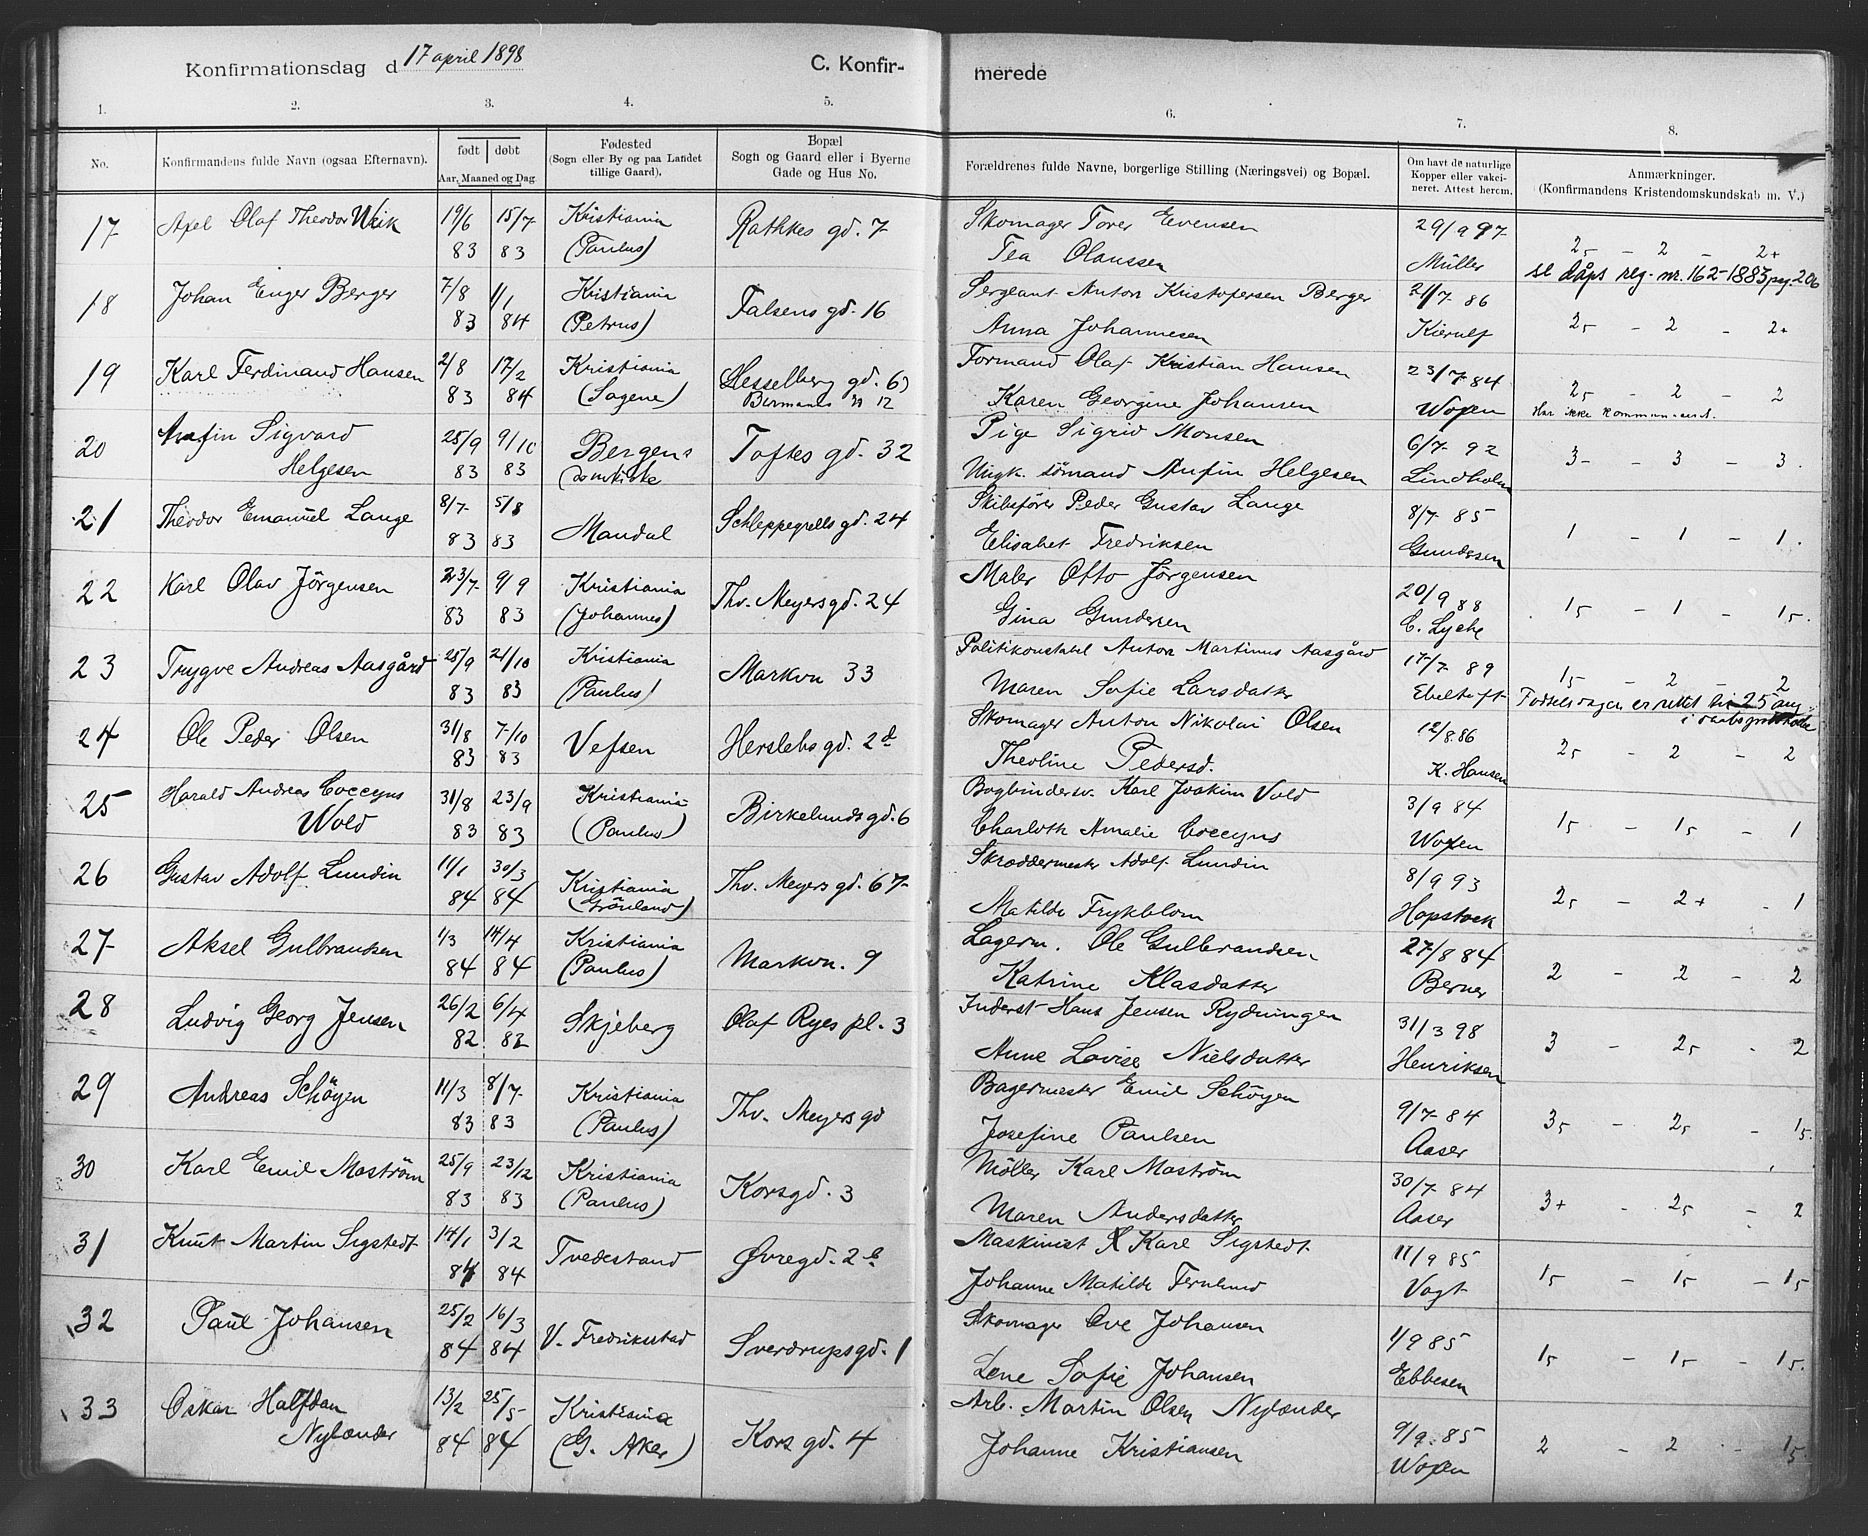 Konfirmationsdag d 17 april 1898 C. Konfir- merede
1. 2. 3. 4. 5. 6. 7. 8.
No. Konfirmandens fulde Navn (ogsaa Efternavn). født døbt Aar, Maaned og Dag. Fødested (Sogn eller By og paa Landet tillige Gaard). Bopæl Sogn og Gaard eller i Byerne Gade og Hus No. Forældrenes fulde Navne, borgerlige Stilling (Næringsvei) og Bopæl. Om havt de naturlige Kopper eller vakcineret. Attest herom. Anmærkninger. (Konfirmandens Kristendomskundskab m. V.)
17 Axel Olaf Theodor Wiik 19/6 15/7 Kristiania Rathkes gd. 7 Skomager Torer Evensen 29/9 97
83 83 (Paulus) Tea Olaussen Müller 25 - 2 - 2+
se dåps reg. nr. 162-1883 pag. 206
18 Johan Enger Berger 7/8 1/1 Kristiania Falsens gd. 16 Sergeant Anton Kristofersen Berger 21/7 86
83 84 (Petrus) Anna Johannesen Kierulf 25 - 2 - 2+
19 Karl Ferdinand Hansen 2/8 17/2 Kristiania (Hesselberg gd. 6) Formand Olaf Kristian Hansen 23/7 84
83 84 (Sagene) Birmanns gd 12 Karen Georgine Johansen Woxen 25 - 2 - 2
Har ikke kommunicert.
20 Anfin Sigvard 25/9 9/10 Bergens Toftes gd. 32 Pige Sigrid Monsen 6/7 92
Helgesen 83 83 domkirke Ungk. sömand Anfin Helgesen Lindholm 3 - 3 - 3.
21 Theodor Emanuel Lange 8/7 5/8 Mandal Schleppegrells gd. 24 Skibsförer Peder Gustav Lange 8/7 85
83 83 Elisabet Fredriksen Gundersen 1 - 1 - 1.
22 Karl Olav Jörgensen 23/7 9/9 Kristiania Thv. Meyers gd. 24 Maler Otto Jörgensen 20/9 88
83 83 (Johannes) Gina Gundersen C. Lyche 15 - 1 - 15.
23 Trygve Andreas Aasgård 25/9 21/10 Kristiania Markvn 33 Politikonstabel Anton Martinus Aasgård 17/7 89
83 83 (Paulus) Maren Sofie Larsdatter Ebeltoft 15 - 2 - 2
Fødselsdagen er rettet til 25 aug.
i dåbsprotokol
24 Ole Peder Olsen 31/8 7/10 Vefsen Herslebs gd. 2d Skomager Anton Nikolai Olsen 12/8 86
83 83 Theoline Pedersd. K. Hansen 25 - 2 - 2
25 Harald Andreas Coccyns 31/8 23/9 Kristiania Birkelunds gd. 6 Bogbindersv. Karl Joakim Vold 3/9 84
Wold 83 83 (Paulus) Charloth Amalie Coccyns Woxen 15 - 15 - 1
26 Gustav Adolf Lundin 11/1 30/3 Kristiania Thv. Meyers gd. 67 Skræddermester Adolf Lundin 8/9 93
84 84 (Grönland) Matilde Frykblom Hopstock 25 - 2+ - 1
27 Aksel Gulbrandsen 1/3 14/4 Kristiania Markvn. 9 Lagerm. Ole Gulbrandsen 27/8 84
84 84 (Paulus) Katrine Klasdatter Berner 2 - 2 - 2
28 Ludvig Georg Jensen 26/2 6/4 Skjeberg Olaf Ryes pl. 3 Inderst Hans Jensen Rydningen 31/3 98
82 82 Anne Lovise Nielsdatter Henriksen 3 - 25 - 2
29 Andreas Schöyen 11/3 8/7 Kristiania Thv. Meyers gd Bagermester Emil Schöyen 9/7 84
83 83 (Paulus) Josefine Paulsen Aaser 35 - 25 - 15.
30 Karl Emil Moström 25/9 23/12 Kristiania Korsgd. 3 Möller Karl Moström 30/7 84
83 83 (Paulus) Maren Andersdatter Aaser 3+ - 25 - 2
31 Knut Martin Sigstedt 14/1 3/2 Tvedestrand Øvregd. 2b Maskinist Karl Sigstedt 11/9 85
84 84 Johanne Matilde Fernlund Vogt 15 - 15 - 15
32 Paul Johansen 25/2 16/3 V. Fredriksstad Sverdrups gd. 1 Skomager Ove Johansen 1/9 85
84 84 Lene Sofie Johansen Ebbesen 15 - 15 - 15.
33 Oskar Halfdan 13/2 25/5 Kristiania Kors gd. 4 Arb. Martin Olsen Nylænder 9/9 85
Nylænder 84 84 (G. Aker) Johanne Kristiansen Woxen 2 - 2 - 15